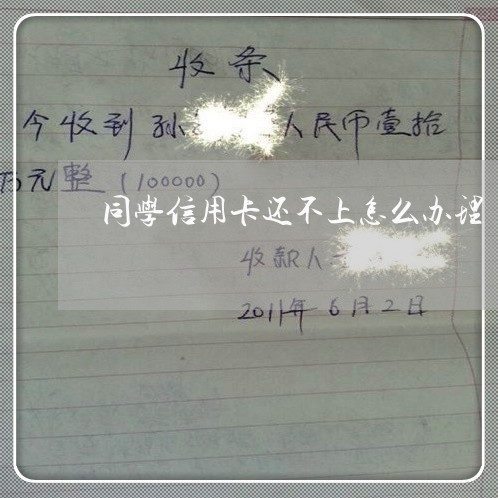 收条
今收到孙 人民币壹拾
万元整(100000)
同学信用卡还不上怎么办理
收款人
2011年6月2日